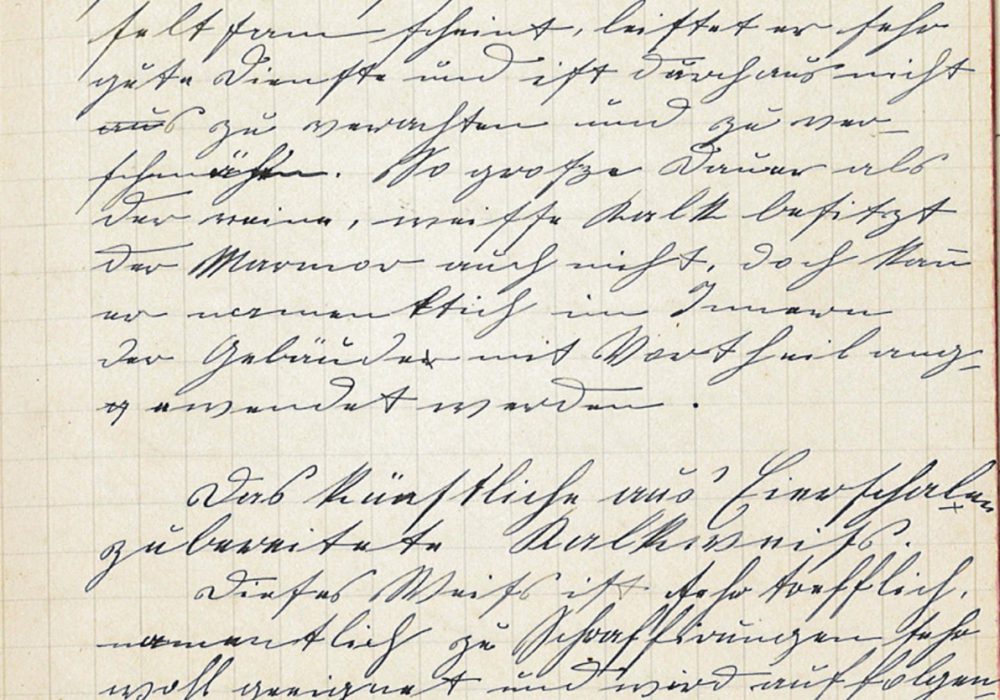 seltsam scheint, leistet er sehr
gute Dienste und ist durchaus nicht
aus zu verachten und zu ver-
schmähen. So große Dauer als
der reine, weisse Kalk besitzt
der Marmor auch nicht, doch kan̄
er namentlich im Innern
der Gebäude mit Vortheil ang-
gewendet werden.
Das künstliche aus Eierschalen
zubereitete Kalkweiß.
Dieses Weiß ist sehr trefflich,
namentlich zu Schraffirungen sehr
wohl geeignet und wird auf folgen